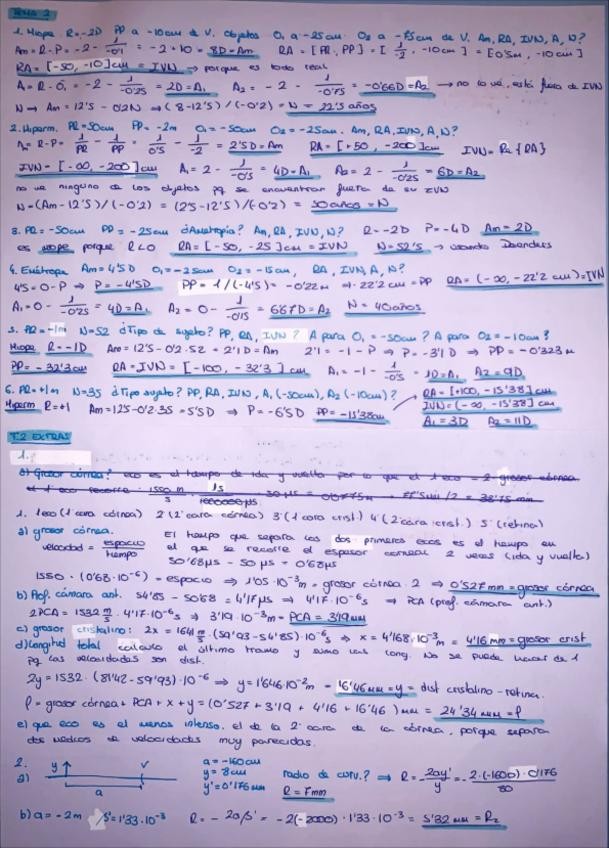 TEMA 2
1. Miope R=-2D PP a -10cm de V. Objetos O₁ a -25cm O₂ a -75cm de V. Am, RA, IVN, A, N?
Am = R-P = -2 - 1/-0'1 = -2+10 = 8D=Am RA = [PR, PP] = [1/-2, -10cm] = [0'5m, -10cm]
RA = [-50, -10]cm = IVN → porque es todo real
A = R-O₁ = -2 - 1/-0'25 = 2D = A₁ A₂ = -2 - 1/-0'75 = -0'66D = A₂ → no lo ve, está fuera de IVN
N → Am = 12'5 - 0'2N ⇒ (8-12'5)/(-0'2) = N = 22'5 años
2. Hiperm. PR=50cm PP=-2m O₁=-50cm O₂=-25cm. Am, RA, IVN, A, N?
A = R-P = 1/PR - 1/PP = 1/0'5 - 1/-2 = 2'5D = Am RA = [+50, -200]cm IVN = {RA}
IVN = [-∞, -200]cm A₁ = 2 - 1/-0'5 = 4D=A₁ A₂ = 2 - 1/-0'25 = 6D=A₂
no ve ninguno de los objetos pq se encuentran fuera de su IVN
N = (Am-12'5)/(-0'2) = (2'5-12'5)/(-0'2) = 50 años = N
3. PR=-50cm PP=-25cm ¿Ametropía? Am, RA, IVN, N? R=-2D P=-4D Am=2D
es miope porque R<0 RA = [-50, -25]cm = IVN N=52'5 → usando Donders
4. Emétrope Am=4'5D O₁=-25cm O₂=-15cm, RA, IVN, A, N?
4'5 = 0-P ⇒ P=-4'5D PP = 1/(-4'5) = -0'22m ⇒ -22'2cm = PP RA = (-∞, -22'2cm) = IVN
A₁ = 0 - 1/-0'25 = 4D = A₁ A₂ = 0 - 1/-0'15 = 6'67D = A₂ N = 40 años
5. PR=-1m N=52 ¿Tipo de sujeto? PP, RA, IVN? A para O₁=-50cm? A para O₂=-10cm?
Miope R=-1D Am = 12'5 - 0'2·52 = 2'1D = Am 2'1 = -1-P ⇒ P=-3'1D ⇒ PP=-0'323m
PP=-32'3cm RA = IVN = [-100, -32'3]cm A₁ = -1 - 1/-0'5 = 1D=A₁ A₂=9D
6. PR=+1m N=35 ¿Tipo sujeto? PP, RA, IVN, A₁(-50cm), A₂(-10cm)?
Hiperm R=+1 Am = 12'5-0'2·35 = 5'5D ⇒ P=-6'5D PP=-15'38cm
RA = [+100, -15'38]cm
IVN = (-∞, -15'38]cm
A₁=3D A₂=11D
T.2 EXTRAS
1.
a) Grosor córnea? eco es el tiempo de ida y vuelta por lo que el 1 eco = 2 grosor córnea
1. 1eco (1ª cara córnea) 2 (2ª cara córnea) 3 (1ª cara crist.) 4 (2ª cara crist.) 5 (retina)
a) grosor córnea. El tiempo que separa los dos primeros ecos es el tiempo en
velocidad = espacio/tiempo el que se recorre el espesor corneal 2 veces (ida y vuelta)
50'68μs - 50μs = 0'68μs
1550·(0'68·10⁻⁶) = espacio ⇒ 1'05·10⁻³m = grosor córnea·2 ⇒ 0'527mm = grosor córnea
b) Prof. cámara ant. 54'85 - 50'68 = 4'17μs ⇒ 4'17·10⁻⁶s ⇒ PCA (prof. cámara ant.)
2PCA = 1532 m/s · 4'17·10⁻⁶s ⇒ 3'19·10⁻³m = PCA = 3'19mm
c) grosor cristalino: 2x = 1641 m/s · (59'93-54'85)·10⁻⁶s ⇒ x = 4'168·10⁻³m = 4'16mm = grosor crist
d) Longitud total calculo el último tramo y sumo las long. No se puede hacer de 1
pq las velocidades son dist.
2y = 1532·(81'42-59'93)·10⁻⁶ ⇒ y = 1'646·10⁻²m = 16'46mm = y = dist cristalino - retina.
l = grosor córnea + PCA + x + y = (0'527 + 3'19 + 4'16 + 16'46) mm = 24'34mm = l
e) que eco es el menos intenso. el de la 2ª cara de la córnea, porque separa
dos medios de velocidades muy parecidas.
2.
a) y V a
a = -160cm
y = 8cm
y' = 0'176mm
radio de curv.? ⇒ R = -2ay'/y = -2·(-1600)·0'176/80
R = 7mm
b) a = -2m S' = 1'33·10⁻³ R = -2a/S' = -2(-2000)·1'33·10⁻³ = 5'32mm = R₂